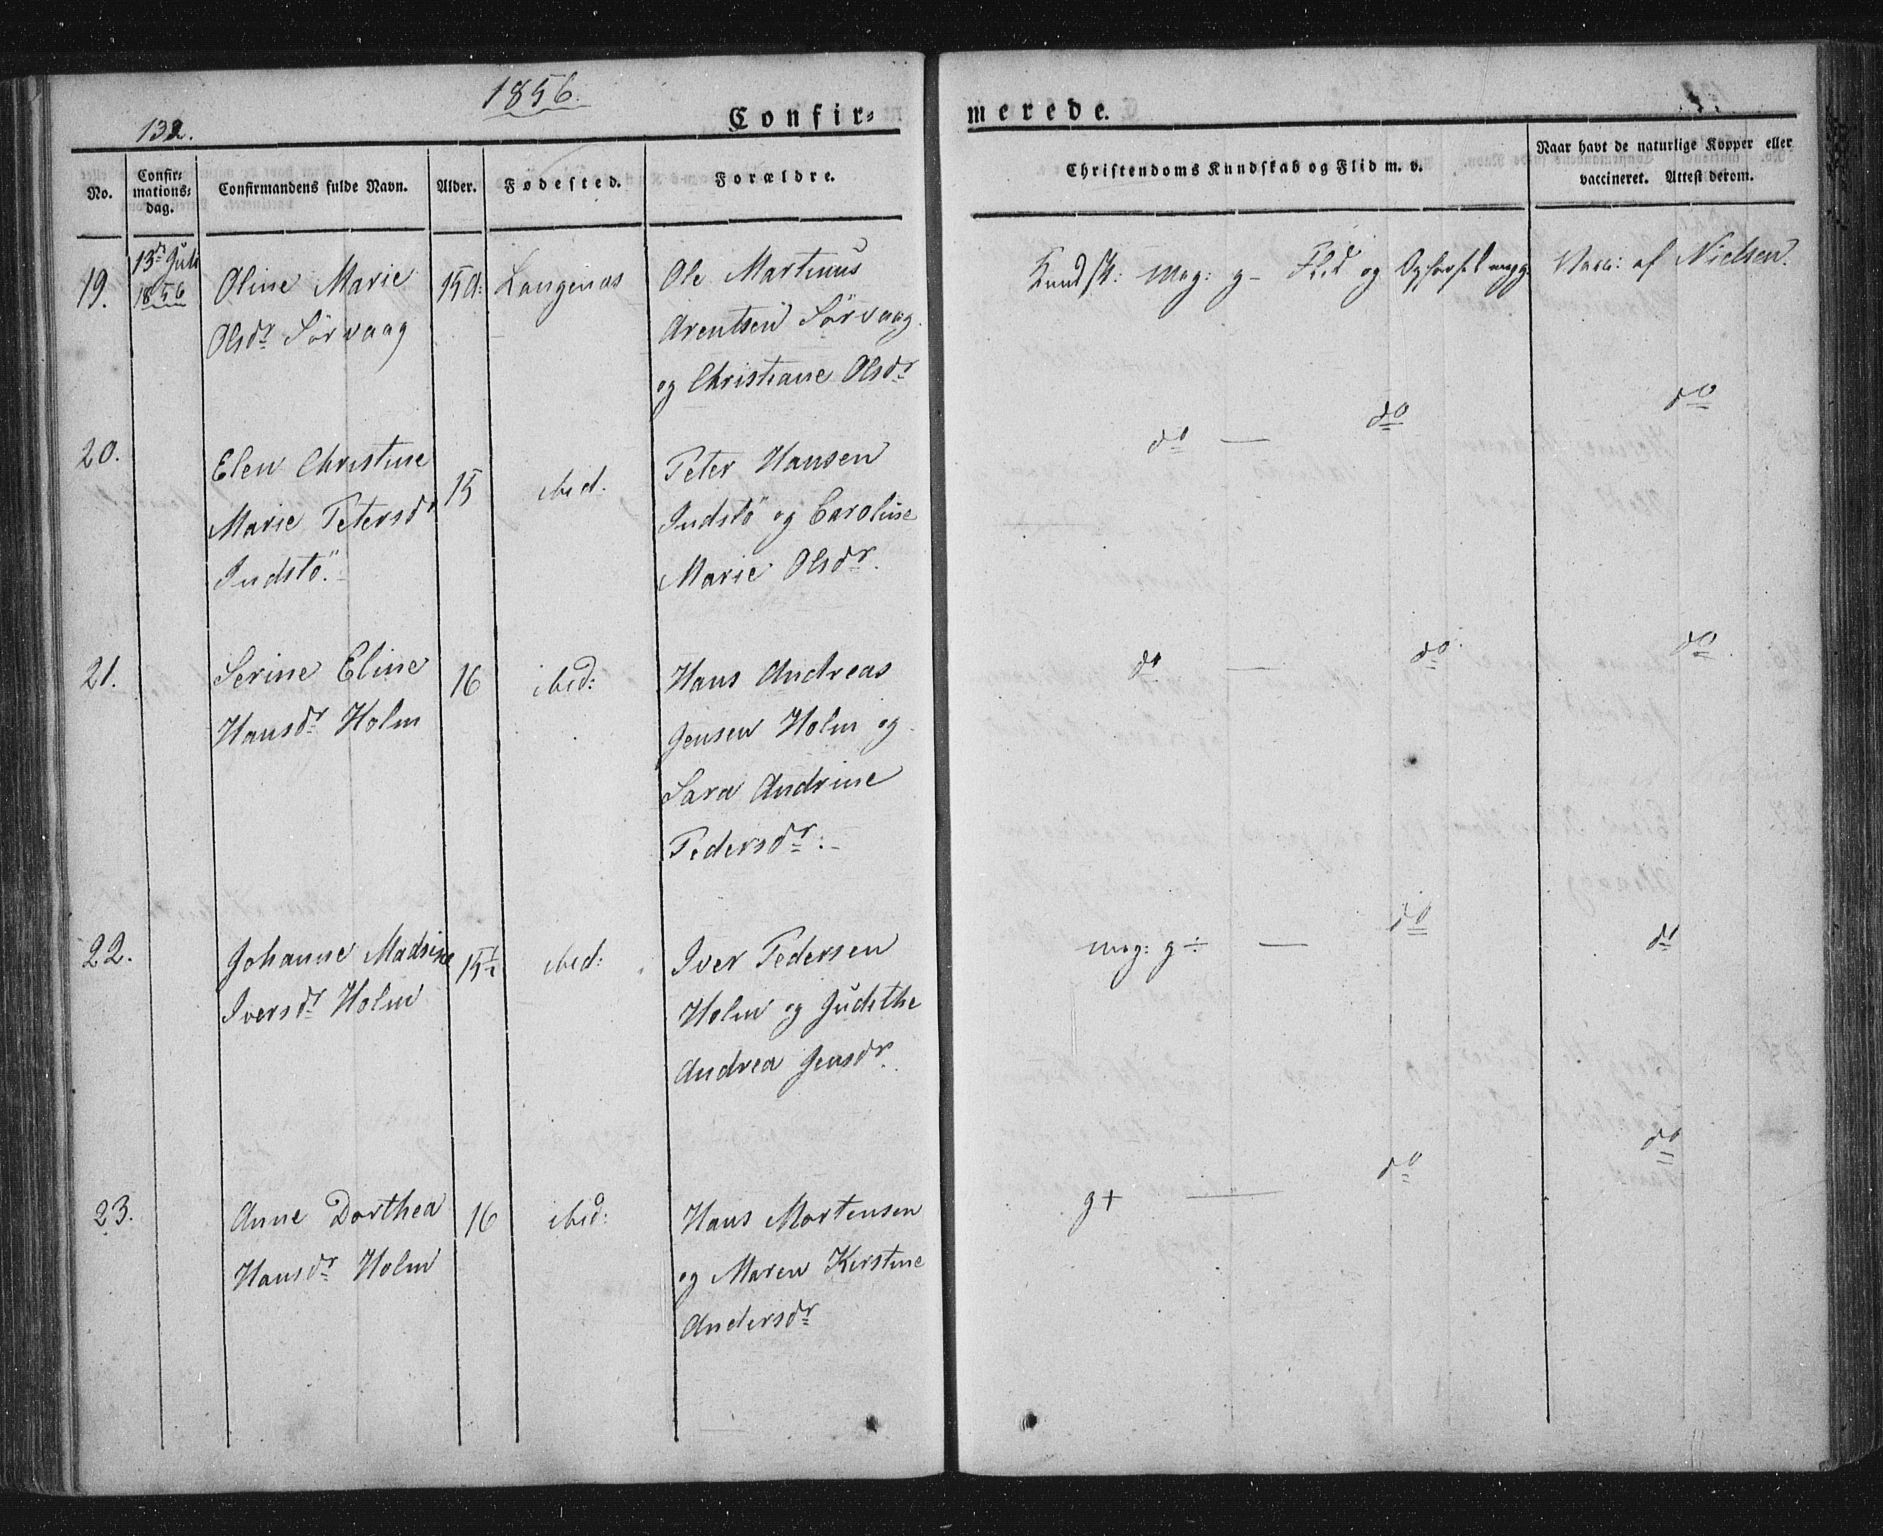 1856.
132.
Confir-
merede.
No.
Confir-
mations-
dag.
Confirmandens fulde Navn.
Alder.
Fødested.
Forældre.
Christendoms Kundskab og Flid m. v.
Naar havt de naturlige Kopper eller
vaccineret. Attest derom.
19.
13de Juli
1856
Oline Marie
Olsdr Sörvaag
15 A:
Langenæs
Ole Martinus
Arentsen Sörvaag
og Christiane Olsdr
Kundsk: Mag: g- Flid og Opførsel megg.
Vacc: af Nielsen.
20.
Elen Christine
Marie Petersdr
Indstö.
15
ibid.
Peter Hansen
Indstö og Caroline
Marie Olsdr.
do — do
do
21.
Serine Eline
Hansdr Holm
16
ibid:
Hans Andreas
Jensen Holm og
Sara Andrine
Pedersdr:
do — do
do
22.
Johanne Madsine
Iversdr Holm
15½
ibid:
Iver Pedersen
Holm og Judithe
Andrea Jensdr.
mag: g÷ — do
do
23.
Anne Dorthea
Hansdr Holm
16
ibid:
Hans Mortensen
og Maren Kirstine
Andersdr
g+ — do
do